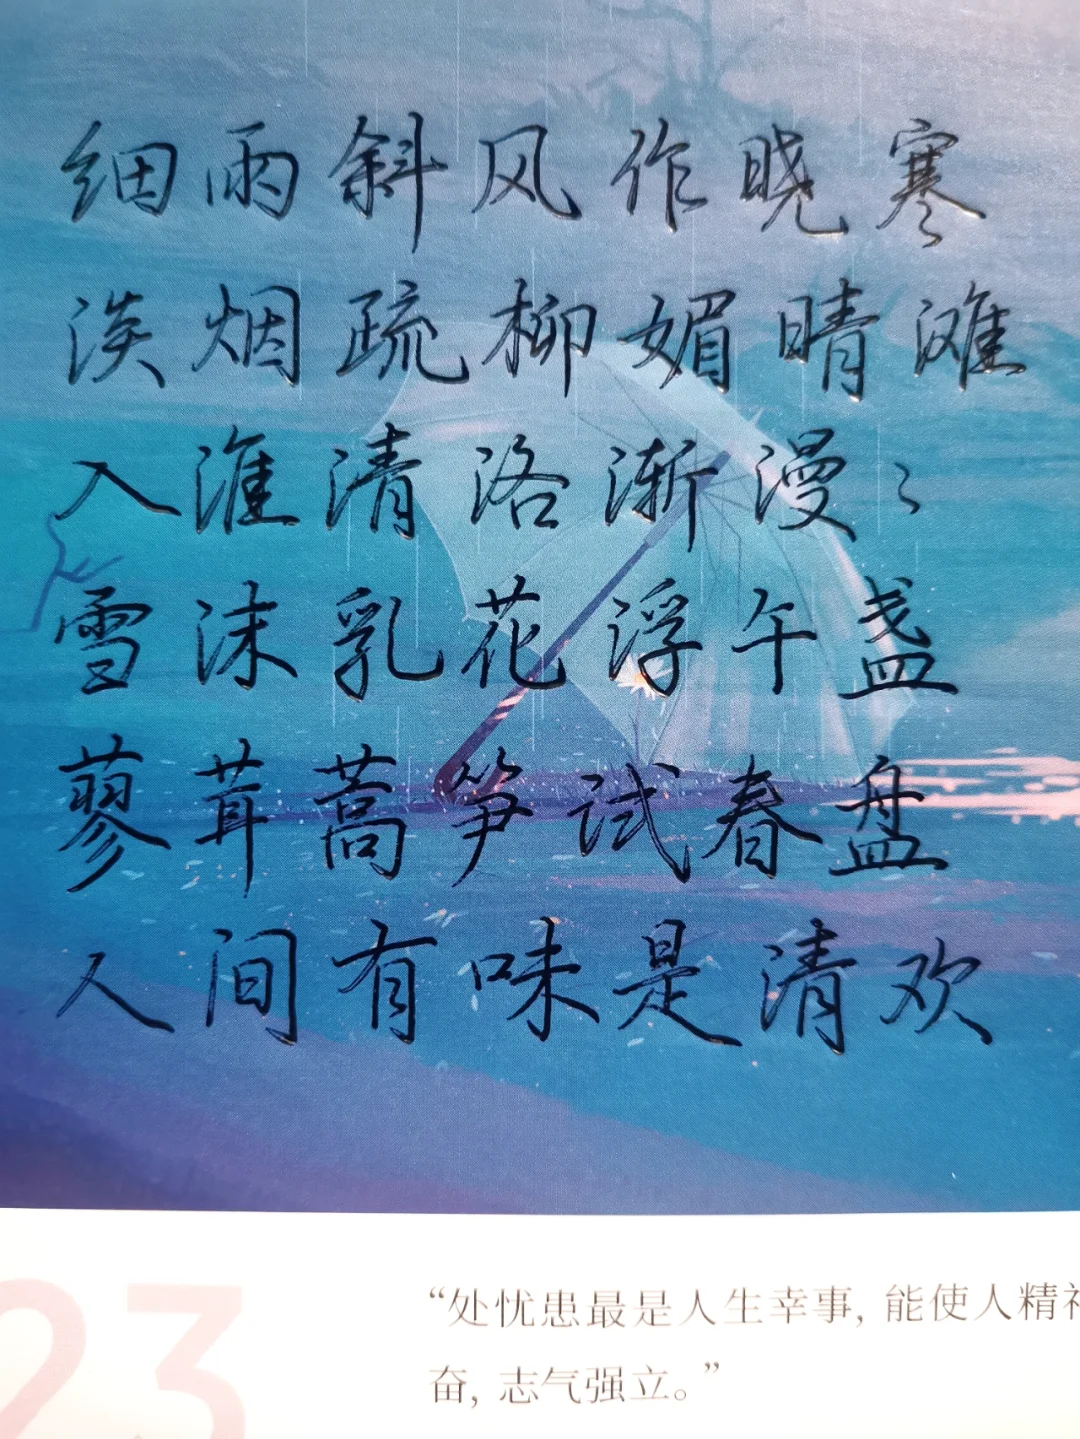 细雨斜风作晓寒
淡烟疏柳媚晴滩
入淮清洛渐漫〻
雪沫乳花浮午盏
蓼茸蒿笋试春盘
人间有味是清欢
23
“处忧患最是人生幸事, 能使人精神
奋, 志气强立。”